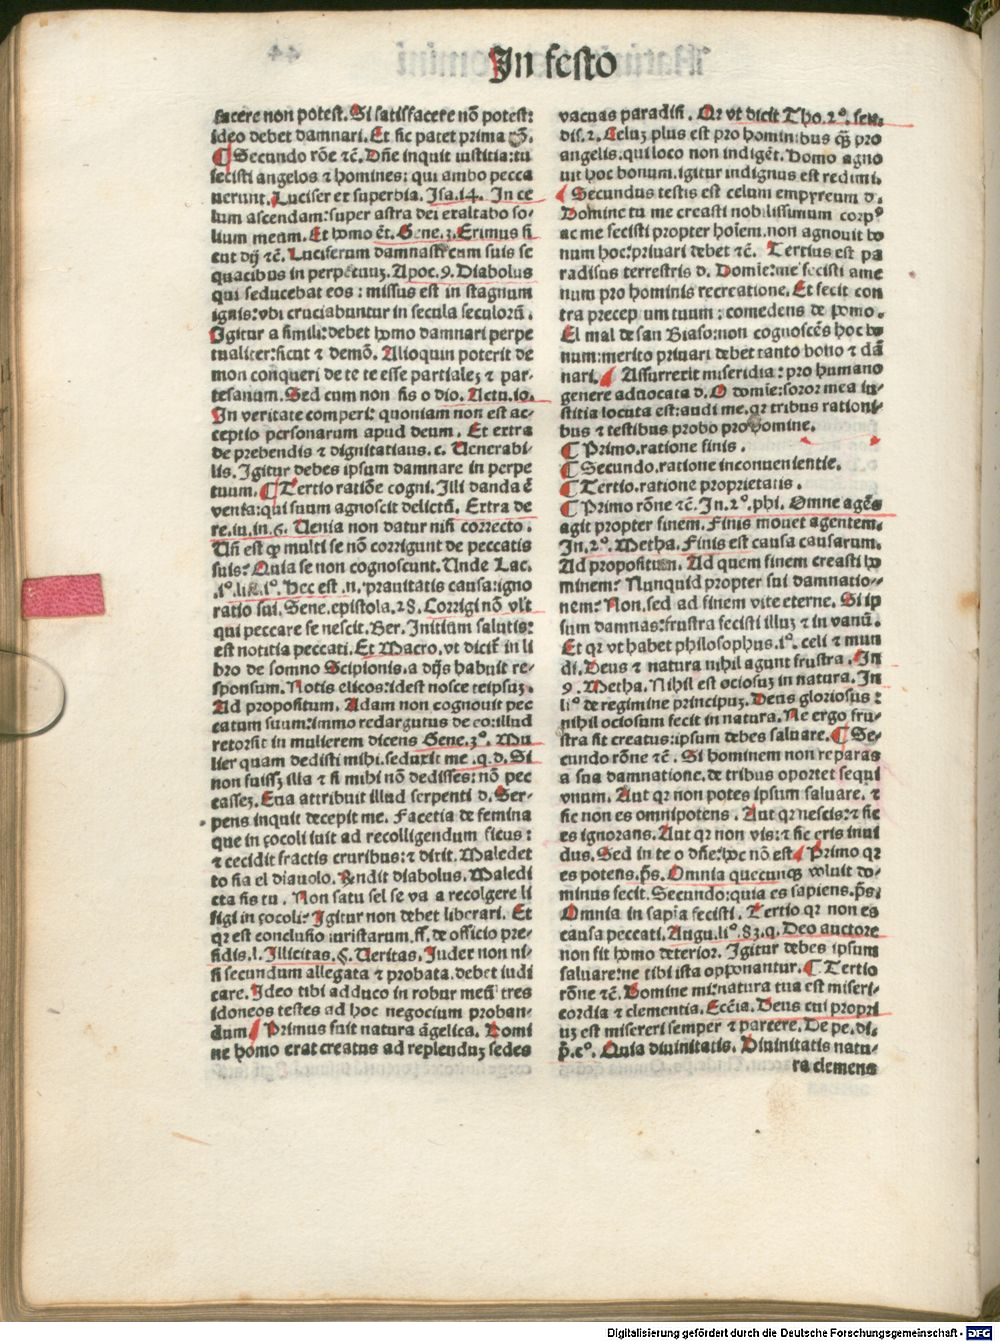 In festo
facere non potest. Si satisfacere nō potest:
ideo debet damnari. Et sic patet prima
¶ Secundo rōne ⁊č. Dñe inquit iustitia: tu
fecisti angelos ⁊ homines: qui ambo pecca
uerunt. Lucifer ex superbia. Isa.14. In ce
lum ascendam: super astra dei exaltabo so-
lium meum. Et homo ēt. Gene.3. Erimus si
cut dij ⁊č. Luciferum damnasti cum suis se
quacibus in perpetuuȝ. Apoc.9. Diabolus
qui seducebat eos: missus est in stagnum
ignis: vbi cruciabuntur in secula seculorū.
Igitur a simili: debet homo damnari perpe
tualiter: sicut ⁊ demō. Alioquin poterit de
mon conqueri de te te esse partialeȝ ⁊ par-
tesanum. Sed cum non sis o dio. Actu.10.
In veritate comperi: quoniam non est ac-
ceptio personarum apud deum. Et extra
de prebendis ⁊ dignitatiaus. c. Uenerabi-
lis. Igitur debes ipsum damnare in perpe
tuum. ¶ Tertio ratiōe cogni. Illi danda ē
venia: qui suum agnoscit delictū. Extra de
re.iu.in.6. Uenia non datur nisi correcto.
Uñ est ꝙ multi se nō corrigunt de peccatis
suis? Quia se non cognoscunt. Unde Lac.
.1º. li. 1º. Hec est .n. prauitatis causa: igno
ratio sui. Sene. epistola.28. Corrigi nō vl't
qui peccare se nescit. Ber. Initium salutis:
est notitia peccati. Et Macro. vt dicit in li
bro de somno Scipionis. a dijs habuit re-
sponsum. Notis elicos: idest nosce teipsuȝ.
Ad propositum. Adam non cognouit pec
catum suum: immo redargutus de eo: illud
retorsit in mulierem dicens Gene.3º. Mu
lier quam dedisti mihi. seduxit me .q.d. Si
non fuisȝ illa ⁊ si mihi nō dedisses: nō pec
casseȝ. Eua attribuit illud serpenti d. Ser-
pens inquit decepit me. Facetia de femina
que in çocoli iuit ad recolligendum ficus:
⁊ cecidit fractis cruribus: ⁊ dixit. Maledet
to sia el diauolo. Rndit diabolus. Maledi
cta sis tu. Non satu sel se va a recolgere li
figi in çocoli? Igitur non debet liberari. Et
qr est conclusio iuristarum. ff. de officio pre-
sidis. l. Illicitas. §. Ueritas. Iudex non ni-
si secundum allegata ⁊ probata. debet iudi
care. Ideo tibi adduco in robur meū tres
idoneos testes ad hoc negocium proban-
dum ¶ Primus fuit natura āgelica. Domi
ne homo erat creatus ad replenduȝ sedes
vacuas paradisi. Qr vt dicit Tho. 2º. sen.
dis. 2. Celuȝ plus est pro hominibus qȝ pro
angelis. qui loco non indigēt. homo agno
uit hoc bonum. igitur indignus est redimi.
¶ Secundus testis est celum empyreum d.
Domine tu me creasti nobilissimum corpꝰ
ac me fecisti propter hoīem. non agnouit bo
num hoc: priuari debet ⁊č. Tertius est pa
radisus terrestris d. Domīe: me fecisti ame
num pro hominis recreatione. Et fecit con
tra preceptum tuum: comedens de pomo.
El mal de san Biaso: non cognoscēs hoc bo
num: merito priuari debet tanto bono ⁊ dā
nari. ¶ Assurrexit miseridia: pro humano
genere aduocata d. O domīe: soror mea iu-
stitia locuta est: audi me. qr tribus rationi-
bus ⁊ testibus probo pro homine.
¶ Primo. ratione finis.
¶ Secundo. ratione inconuenientie.
¶ Tertio. ratione proprietatis.
¶ Primo rōne ⁊č. In.2º. phi. Omne agēs
agit propter finem. Finis mouet agentem.
In.2º. Metha. Finis est causa causarum.
Ad propositum. Ad quem finem creasti ho
minem? Nunquid propter sui damnatio-
nem? Non. sed ad finem vite eterne. Si ip
sum damnas: frustra fecisti illuȝ ⁊ in vanū.
Et qr vt habet philosophus. 1º. celi ⁊ mun
di. Deus ⁊ natura nihil agunt frustra. In
9. Metha. Nihil est ociosuȝ in natura. In
liº de regimine principuȝ. Deus gloriosus:
nihil ociosum fecit in natura. Ne ergo fru-
stra sit creatus: ipsum debes saluare. ¶ Se-
cundo rōne ⁊č. Si hominem non reparas
a sua damnatione. de tribus oportet sequi
vnum. Aut qr non potes ipsum saluare. ⁊
sic non es omnipotens. Aut qr nescis: ⁊ sic
es ignorans. Aut qr non vis: ⁊ sic eris inui
dus. Sed in te o dñe: hoc nō est ¶ Primo qr
es potens. p̄s. Omnia quecunqȝ voluit do-
minus fecit. Secundo: quia es sapiens. p̄s.
Omnia in sapīa fecisti. Tertio qr non es
causa peccati. Augu. liº. 83. q. Deo auctore
non fit homo deterior. Igitur debes ipsum
saluare: ne tibi ista opponantur. ¶ Tertio
rōne ⁊č. Domine mi: natura tua est miseri-
cordia ⁊ clementia. Eccīa. Deus cui propri
uȝ est misereri semper ⁊ parcere. De pe. di.
p̄. cº. Quia diuinitatis. Diuinitatis natu-
ra clemens
Digitalisierung gefördert durch die Deutsche Forschungsgemeinschaft - DFG